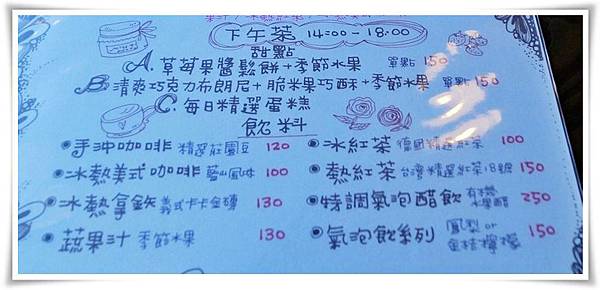 下午茶 14:00-18:00
甜點
A. 草莓果醬鬆餅+季節水果 單點 150
B. 清爽巧克力布朗尼+脆米果巧酥+季節水果 單點 150
C. 每日精選蛋糕
飲料
手沖咖啡 精選莊園豆 120
冰熱美式咖啡 藍山風味 100
冰熱拿鉄 義式卡卡金磚 130
蔬果汁 季節水果 130
冰紅茶 德國精選紅茶 100
熱紅茶 台灣精選紅茶18號 150
特調氣泡醋飲 有機水果醋 250
氣泡飲系列 鳳梨 or 金桔檸檬 150